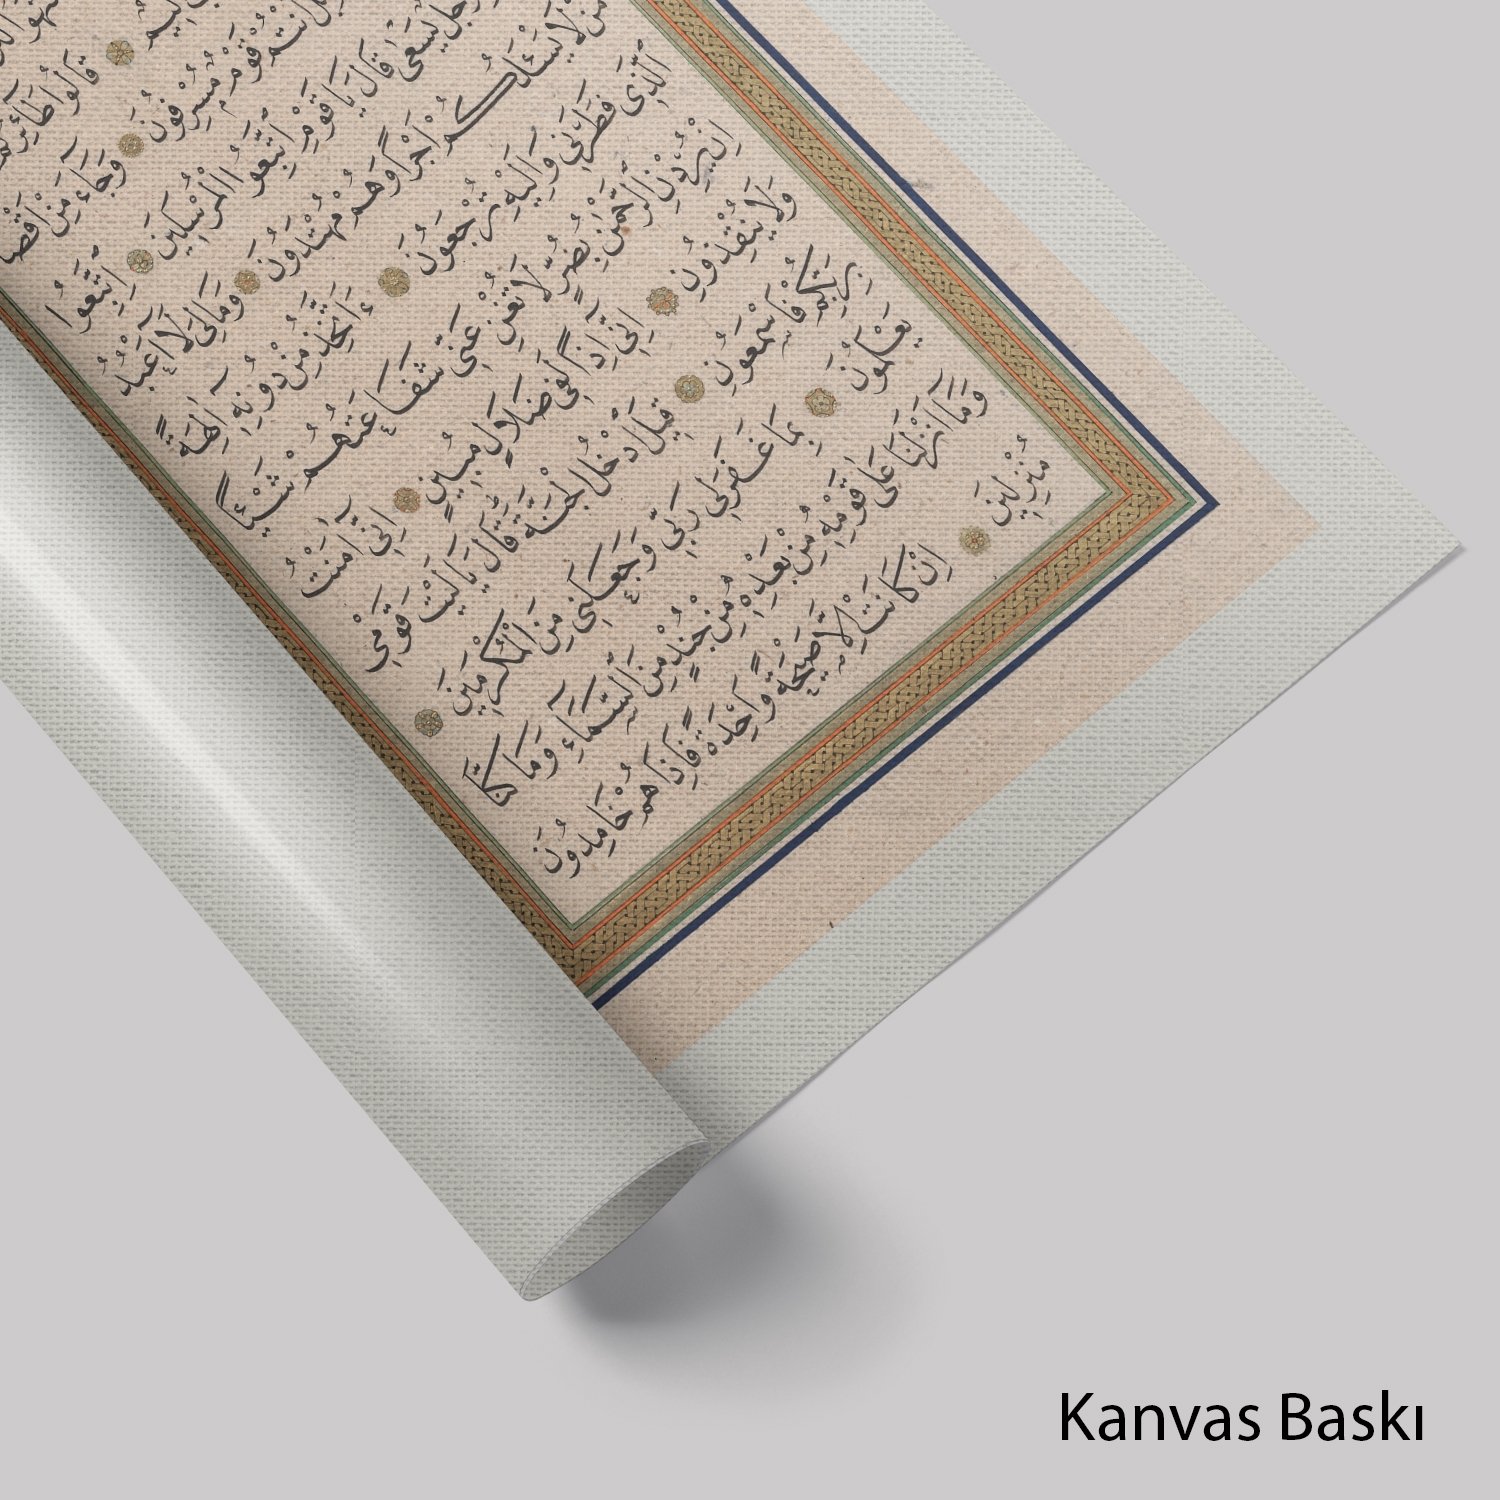 قَالُوا طَائِرُكُمْ
بَلْ اَنْتُمْ قَوْمٌ مُسْرِفُونَ وَجَاءَ مِنْ اَقْصَا
رَجُلٌ يَسْعٰى قَالَ يَا قَوْمِ اتَّبِعُوا الْمُرْسَلِينَ اِتَّبِعُوا
مَنْ لَا يَسْئَلُكُمْ اَجْرًا وَهُمْ مُهْتَدُونَ وَمَا لِيَ لَا اَعْبُدُ
الَّذِى فَطَرَنِى وَاِلَيْهِ تُرْجَعُونَ ءَاَتَّخِذُ مِنْ دُونِهِ اٰلِهَةً
اِنْ يُرِدْنِ الرَّحْمٰنُ بِضُرٍّ لَا تُغْنِ عَنِّى شَفَاعَتُهُمْ شَيْئًا
وَلَا يُنْقِذُونِ اِنِّى اِذًا لَفِى ضَلَالٍ مُبِينٍ اِنِّى اٰمَنْتُ
بِرَبِّكُمْ فَاسْمَعُونِ قِيلَ ادْخُلِ الْجَنَّةَ قَالَ يَا لَيْتَ قَوْمِى
يَعْلَمُونَ بِمَا غَفَرَ لِى رَبِّى وَجَعَلَنِى مِنَ الْمُكْرَمِينَ
وَمَا اَنْزَلْنَا عَلٰى قَوْمِهِ مِنْ بَعْدِهِ مِنْ جُنْدٍ مِنَ السَّمَاءِ وَمَا كُنَّا
مُنْزِلِينَ اِنْ كَانَتْ اِلَّا صَيْحَةً وَاحِدَةً فَاِذَا هُمْ خَامِدُونَ
Kanvas Baskı